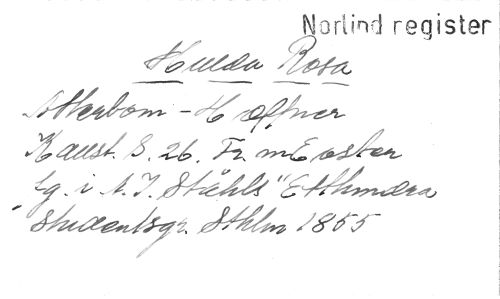 Norlind register
Hulda Rosa
Atterbom - Hæffner
Kaust. S. 26. Fr. m E oster
fg. i A. I. Ståhls "Etthundra
studentsgr. Sthlm 1855